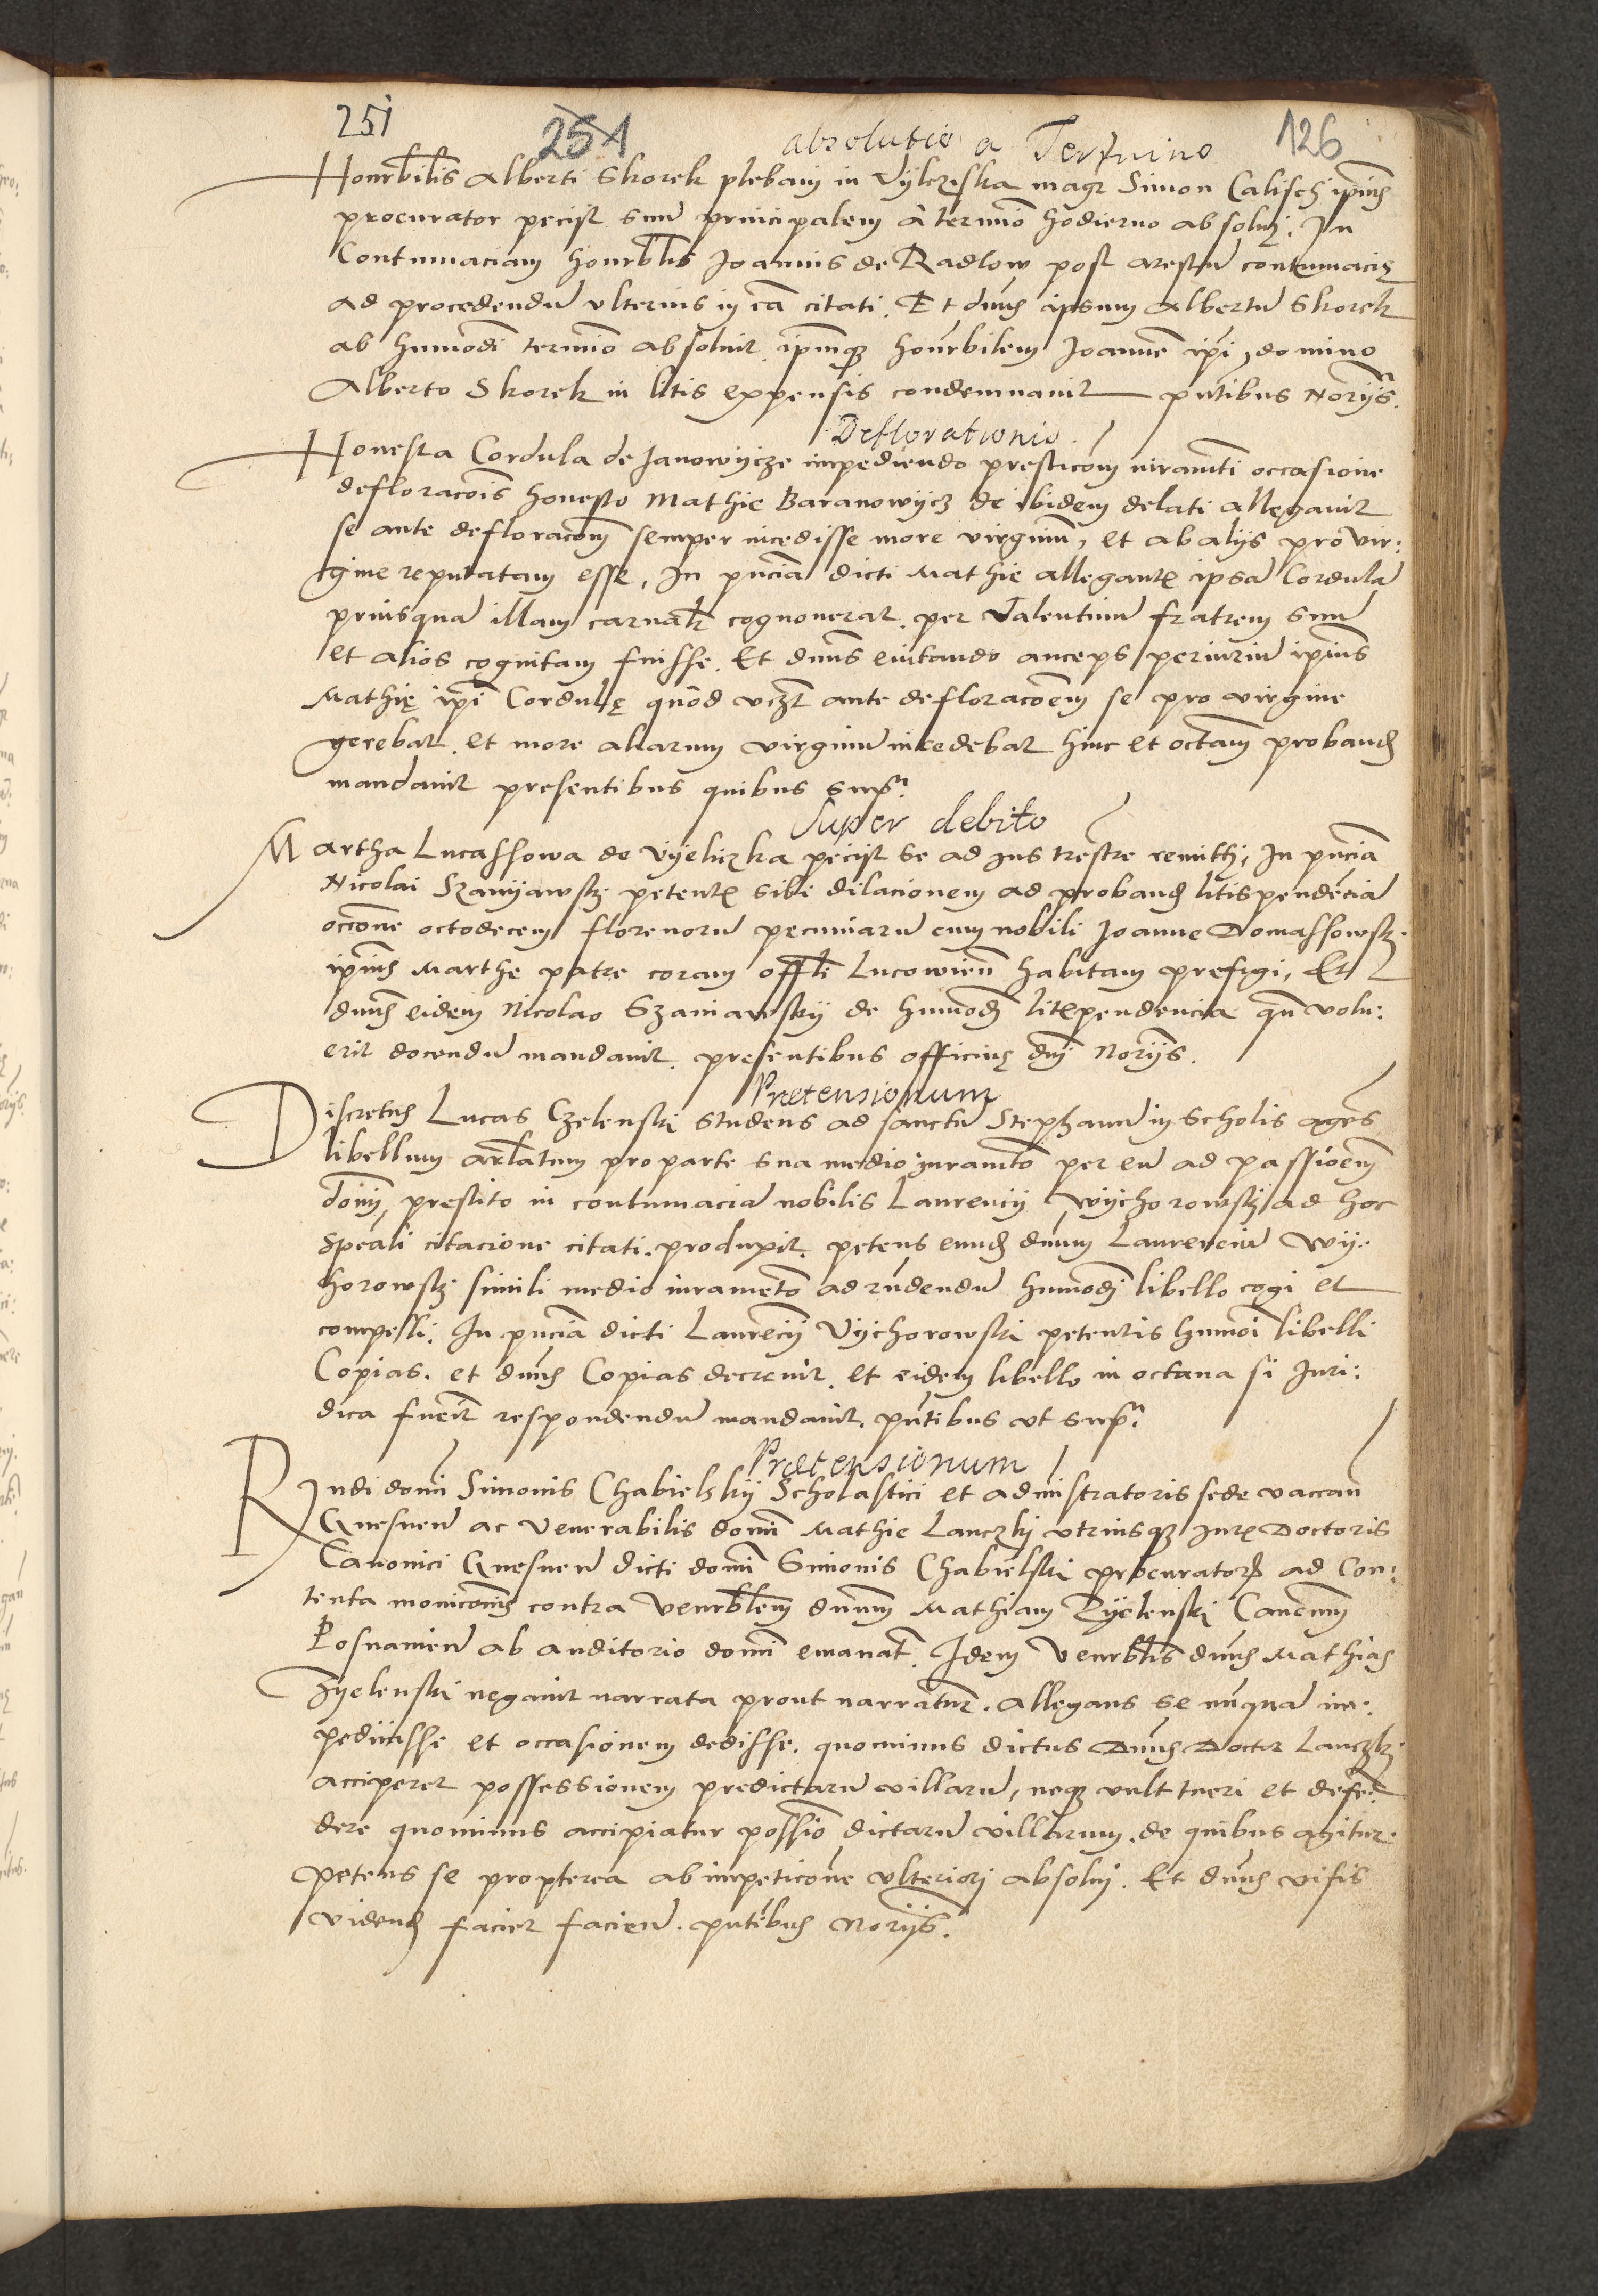 251 254 126
absolutio a Termino
Honrbilis Alberti Skorek plebani in Vylczeska magr Simon Calisch ipius
procurator peciit suum principalem a termino hodierno absolui. In
Contumaciam honrblis Joannis de Radlow post arestum contumacię
ad procedendu vlterius in ca citati. Et dnus ipsum Albertu Skorek
ab hmoodi termino absoluit ipmq honrbilem Joanne ipi domino
Alberto Skorek in litis expensis condemnauit pntibus Noriis.
Deflorationis.
Honesta Cordula de Janowycze impediendo presticom iuramti occasione
defloracois honesto Mathie Baranowycz de ibidem delati allegauit
se ante defloracom semper incedisse more virginum, et ab alijs pro vir:
gine reputatam esse, In pncia dicti Mathie allegantis ipsa Cordula
priusqua illam carnalr cognouerat per Valentinu fratrem suu
et alios cognitam fuisse. Et dnus euitando anceps periuriu ipius
Mathię ipi Cordulę quod vczt ante defloracoem se pro virgine
gerebat et more aliarum virginu incedebat hinc et octam proband
mandauit presentibus quibus supr.
Super debito
Martha Lucassowa de Vyeliczka peciit se ad ius trestre remitti, In pncia
Nicolai Szanyawsky petentis sibi dilacionem ad proband litispendecia
occione octodecem florenoru pecuniaru cum nobili Joanne Domassowsky
ipius Marthe patre coram offli Lucowien habitam prefigi, Et
dnus eidem Nicolao Szaniawsky de hmodi litispendencia qn volu:
erit docendu mandauit. presentibus officius dni Noriis.
Prætensionum
Discretus Lucas Czelenski studens ad sanctu Stephanu in Scholis agens
libellum artlatum pro parte sua medio iuramto per eu ad passioem
domi prestito in contumacia nobilis Laurencij Wychorowsky ad hoc
speali citacione citati produxit. petens eund dnum Laurenciu Wy:
horowsky simili medio iuramento ad rndendu hmodi libello cogi et
compelli. In pncia dicti Laurecij Vychorowski petentis hmoi libelli
Copias. et dnus Copias decreuit et eidem libello in octaua si Juri:
dica fuerit respondendu mandauit. pntibus vt supr.
Prætensionum
Rundi domi Simonis Chabielsky Scholastici et admistratoris sede vaccan
Gnesnen ac Venerabilis domi Mathie Lanczky vtriusq Juris Doctoris
Canonici Gnesnen dicti domi Simonis Chabielski procuratoris ad Con:
tenta monicois contra Venrblem dnum Mathiam Zyelenski Canonm
Posnanien ab auditorio domi emanat. Idem Venrblis dnus Mathias
Zyelenski negauit narrata prout narrantur. allegans se nunqua im:
pediuisse et occasionem dedisse. quominus dictus Dnus Doctor Lanczky
acciperet possessionem predictaru villaru, neq vult tueri et defe:
dere quominus accipiatur possio dictaru villarum de quibus agitur.
petens se propterea ab impeticone vlteriori absolui. Et dnus visis
videnś faciet facien. pntibus Noriis.